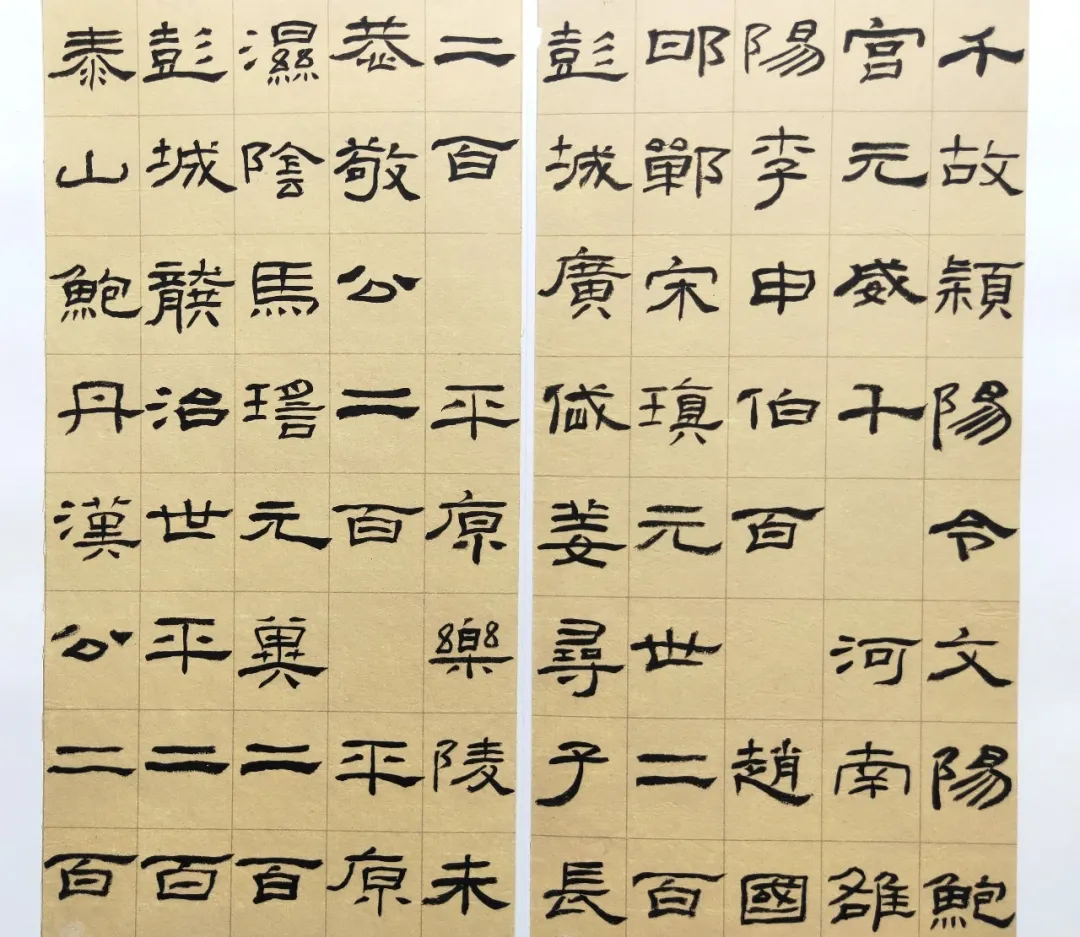 千故潁陽令文陽鮑
宮元威千 河南雒
陽李申伯百 趙國
邯鄲宋瑱元世二百
彭城廣戚姜尋子長
二百 平原樂陵朱
恭敬公二百 平原
濕陰馬瑤元冀二百
彭城龔治世平二百
泰山鮑丹漢公二百